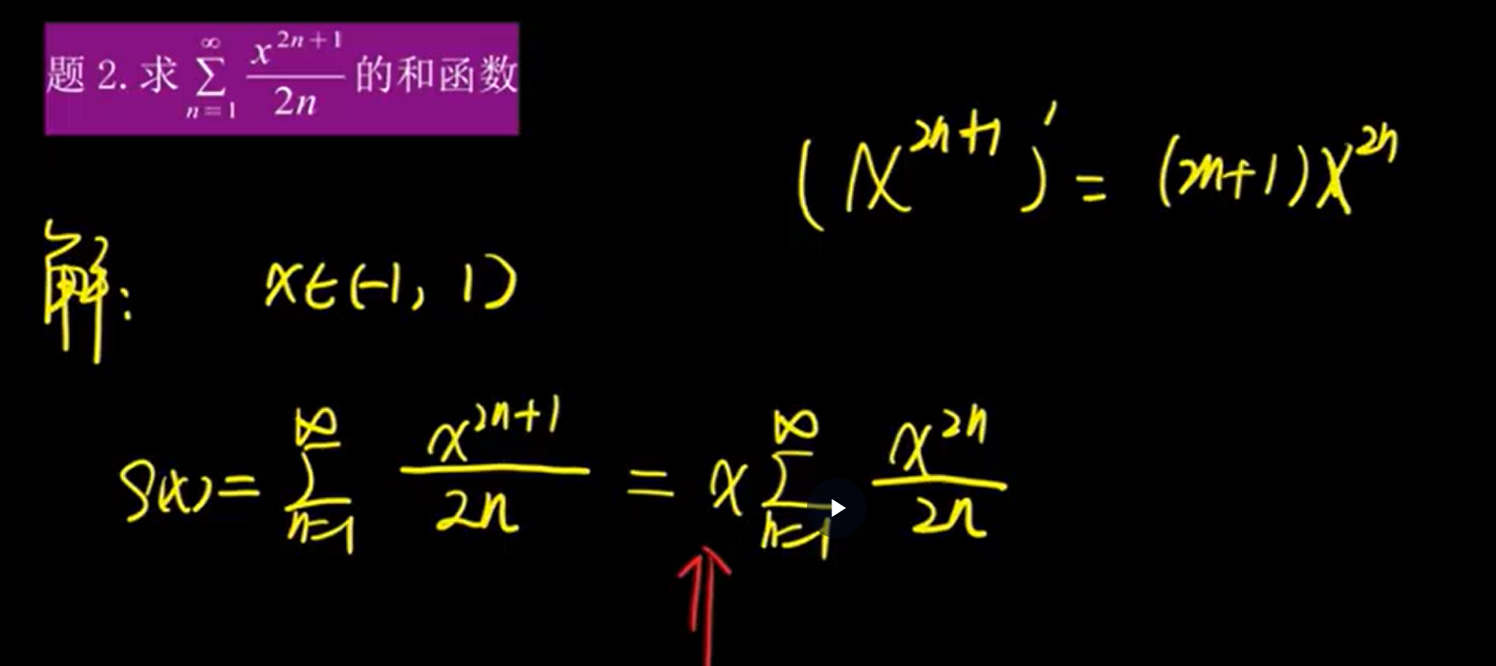 题 2. 求 ∑_{n=1}^{∞} x^{2n+1}/2n 的和函数
(x^{2n+1})' = (2n+1)x^{2n}
解: x∈(-1, 1)
S(x) = ∑_{n=1}^{∞} x^{2n+1}/2n = x ∑_{n=1}^{∞} x^{2n}/2n